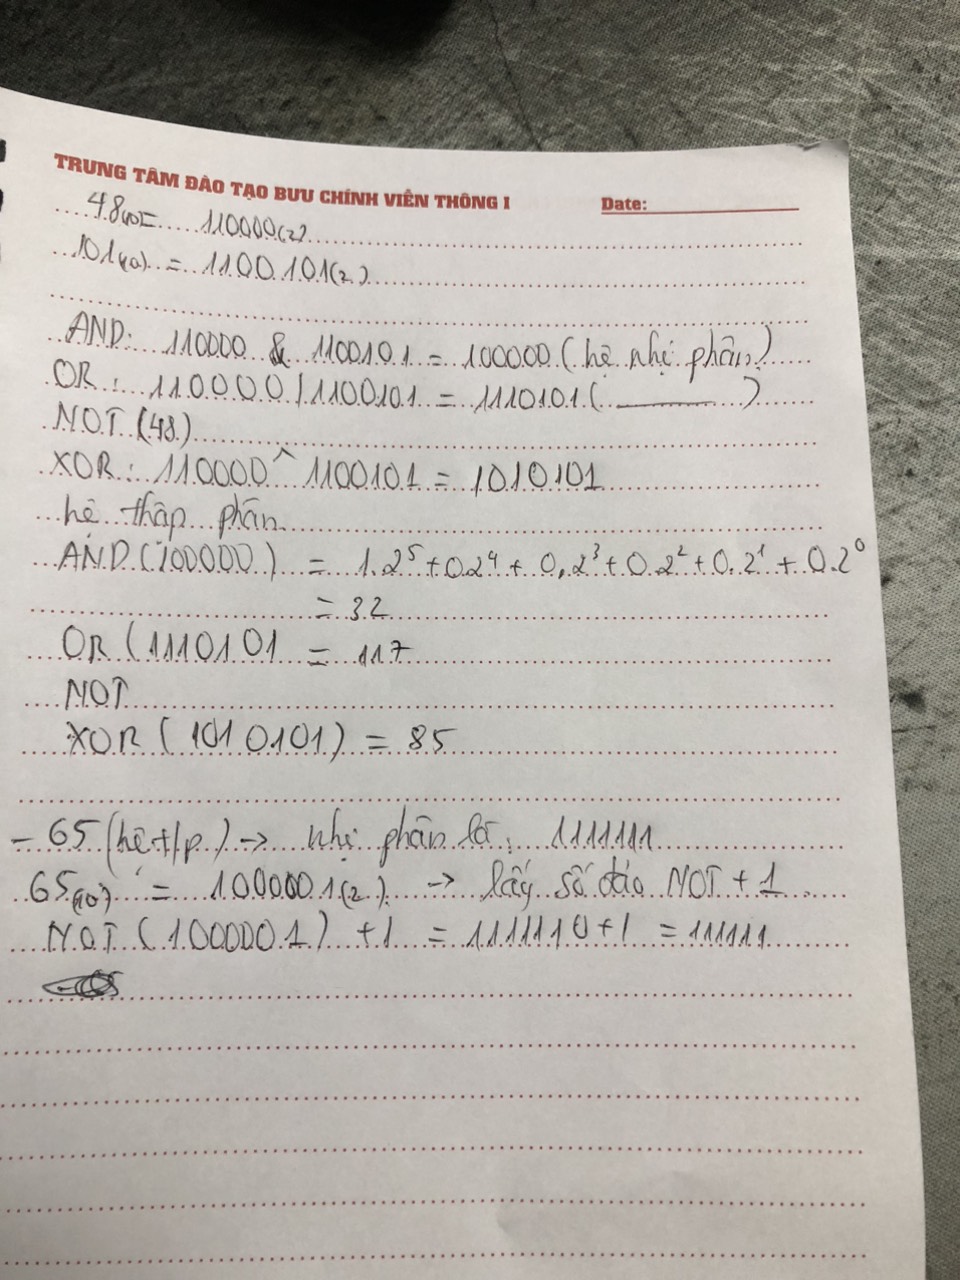 TRUNG TÂM ĐÀO TẠO BƯU CHÍNH VIỄN THÔNG I Date:
48(10) = 110000(2)
101(10) = 1100101(2)
AND: 110000 & 1100101 = 100000 (hệ nhị phân)
OR: 110000 | 1100101 = 1110101 ( ——— )
NOT (48)
XOR: 110000 ^ 1100101 = 1010101
hệ thập phân
AND (100000) = 1.2⁵ + 0.2⁴ + 0.2³ + 0.2² + 0.2¹ + 0.2⁰
= 32
OR (1110101 = 117
NOT
XOR (1010101) = 85
- 65 (hệ t/p) -> nhị phân là: 1111111
65(10) = 1000001(2) -> lấy số đảo NOT + 1
NOT (1000001) + 1 = 1111110 + 1 = 111111